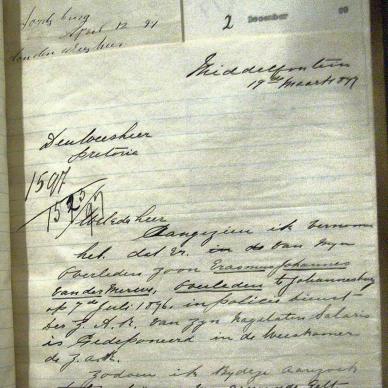 April 12 91
2 December 99
Middelfontein
19de Maart 1897
Den Weesheer
Pretoria
1597
1523/97
WelEd. heer
Aangezien ik vernomen
heb dat er in de van mijn
overleden zoon Erasmus Johannes
van der Merwe, overleden te Johannesburg
op 7de Juli 1896, in policie dienst
der Z. A. R. van zijn nagelaten Salaris
is gedeponeerd in de Weeskamer
de Z.A.R.
Zodoen ik bydeze aanzoek